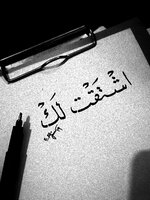 اشتقت لكَ